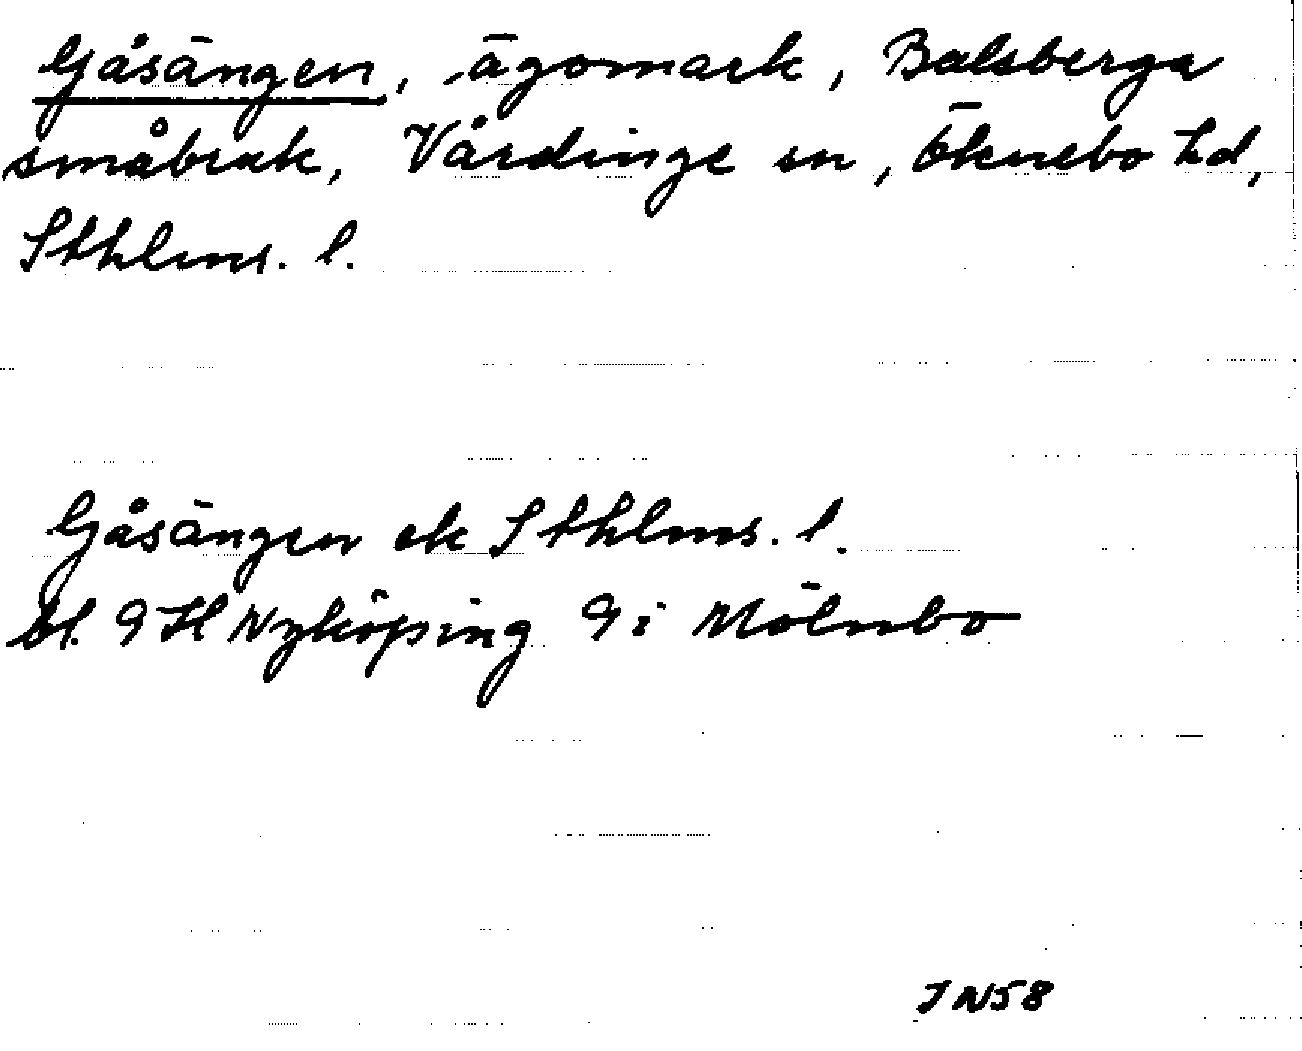 Gåsängen, ägomark, Balsberga
småbruk, Vårdinge sn, Öknebo hd,
Sthlms. l.
Gåsängen ek Sthlms. l.
bl. 9H Nyköping 9i Mölnbo
JN58